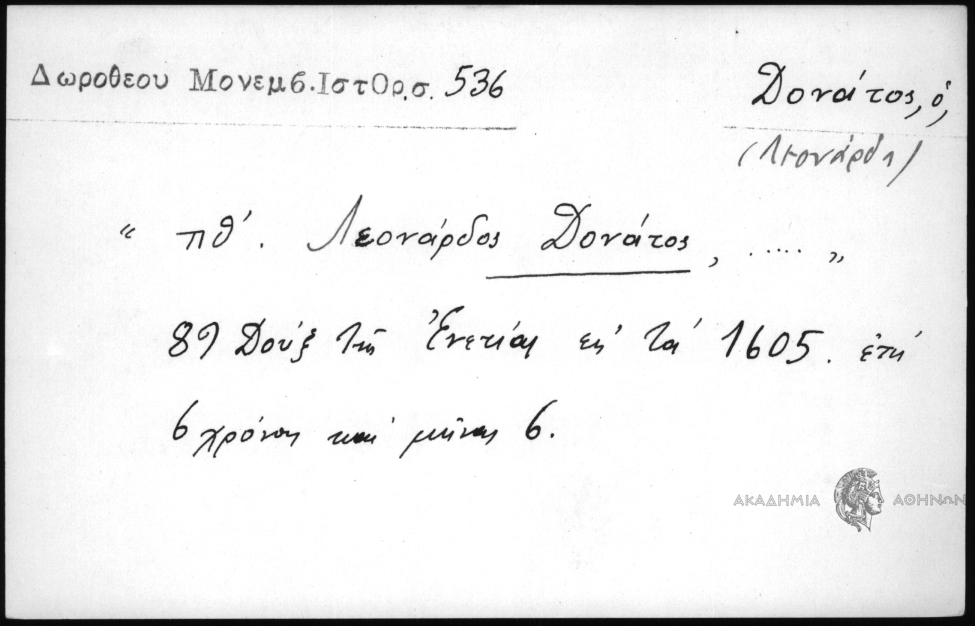 Δωροθεου Μονεμβ.ΙστΟρ.σ. 536
Δονάτος, ὁ,
(Λεονάρδη)
“ πθ΄. Λεονάρδος Δονάτος, ..... „
89 Δούξ τῆς Ἐνετίας εἰς τά 1605. ἐπί
6 χρόνους καί μῆνας 6.
ΑΚΑΔΗΜΙΑ ΑΘΗΝΩΝ